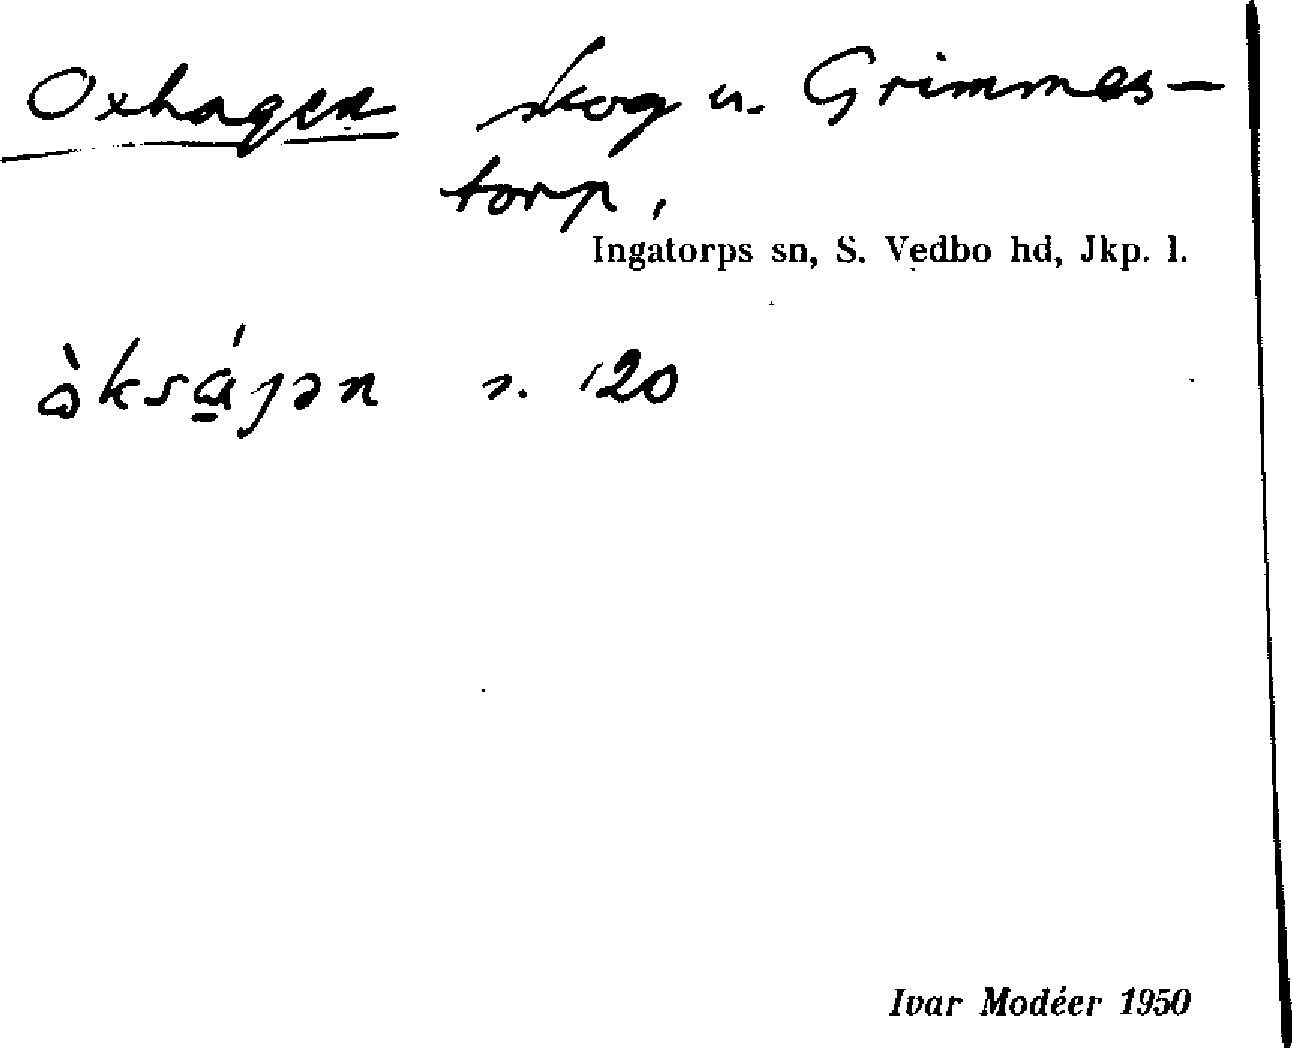 Oxhagen skog u. Grimmes-
torp,
Ingatorps sn, S. Vedbo hd, Jkp. l.
òksájən s. 120
Ivar Modéer 1950